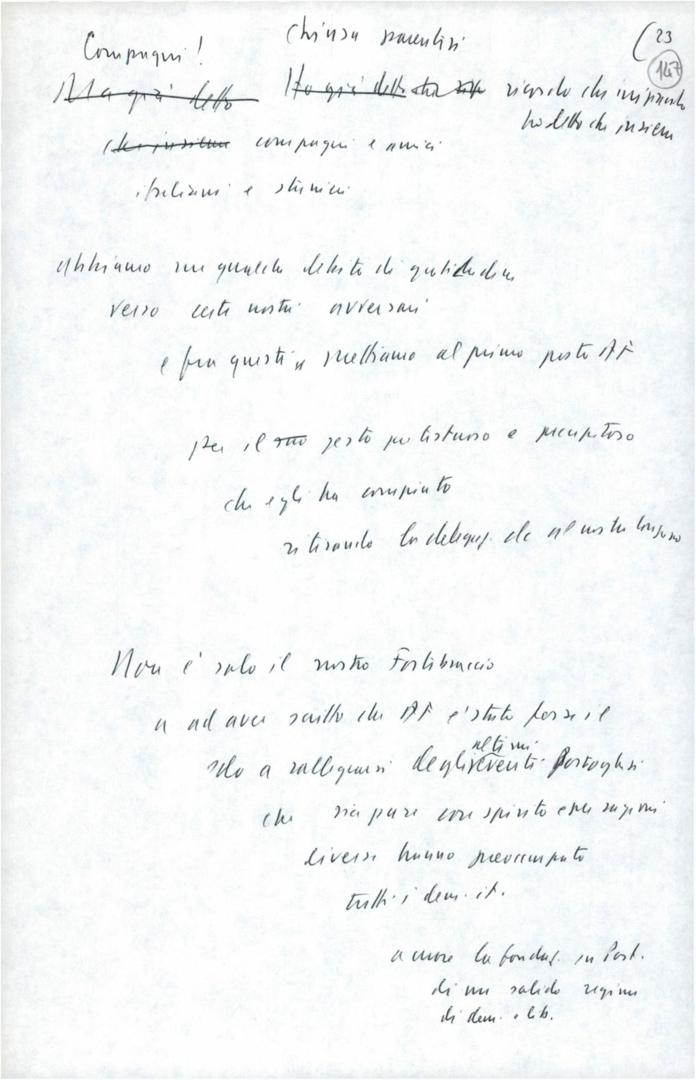 (23
147
Compagni! Chiusa parentesi
Ma già detto Ho già detto ricordo che iniziando
ho detto che insieme
che insieme compagni e amici
italiani e stranieri
abbiamo un qualche debito di gratitudine
verso certi nostri avversari
e fra questi mettiamo al primo posto AF
per il suo gesto precipitoso
che egli ha compiuto
ritirando la delegaz. dc al nostro Congresso
Non è solo il nostro Fortebraccio
a ad aver scritto che AF è stato forse il
solo a rallegrarsi degli ultimi eventi Portoghesi
che sia pure con spirito e per ragioni
diverse hanno preoccupato
tutti i dem. it.
a cuore la fondaz. in Port.
di un solido regime
di dem. e lib.